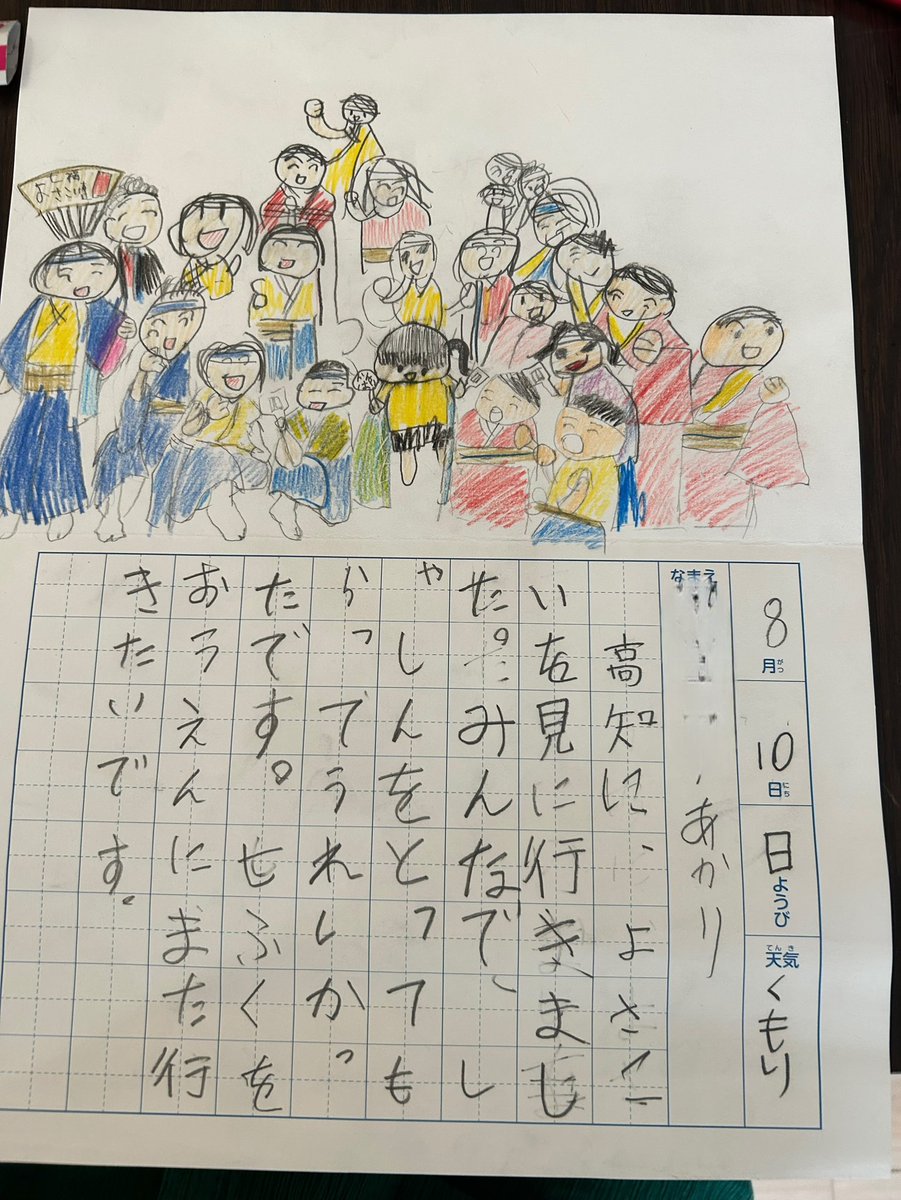 8月
がつ
10日
にち
日ようび
天気
てんき
くもり
なまえ
あかり
高知に、よさこ
いを見に行きまし
た。みんなで、し
ゃしんをとっても
らっでうれしかっ
たです。せふくを
おうえんにまた行
きたいです。